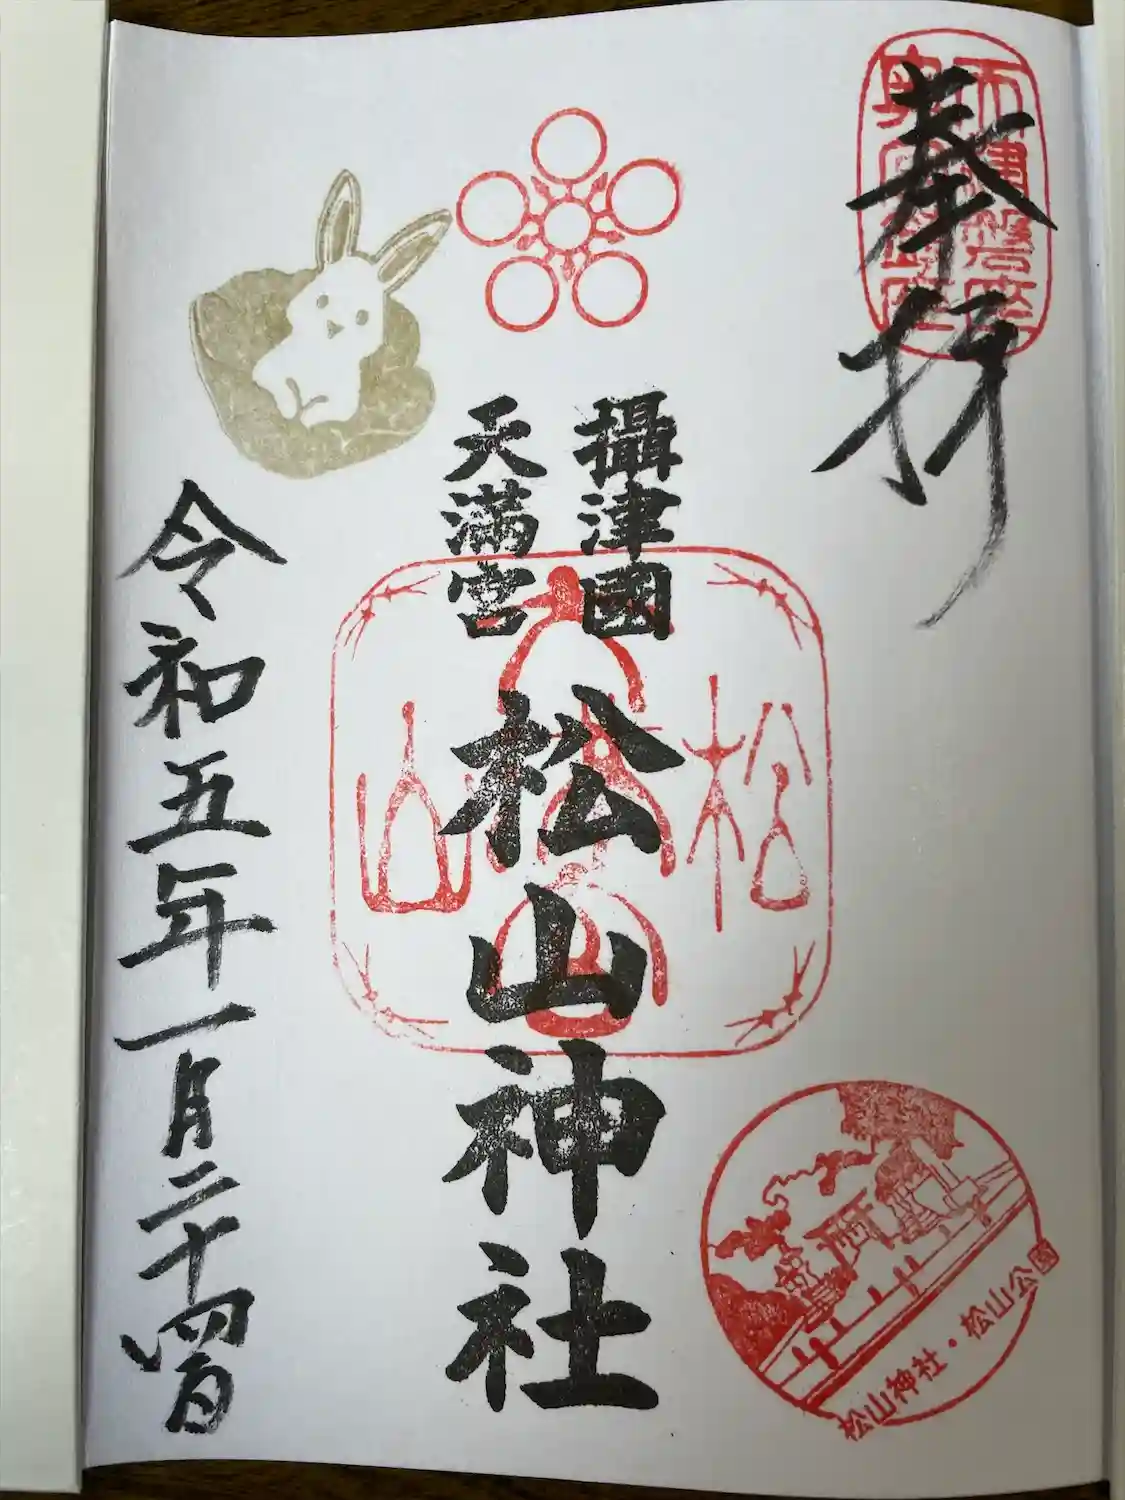 奉拝
攝津國
天満宮
松山神社
令和五年一月二十四日
松山
松山神社・松山公園